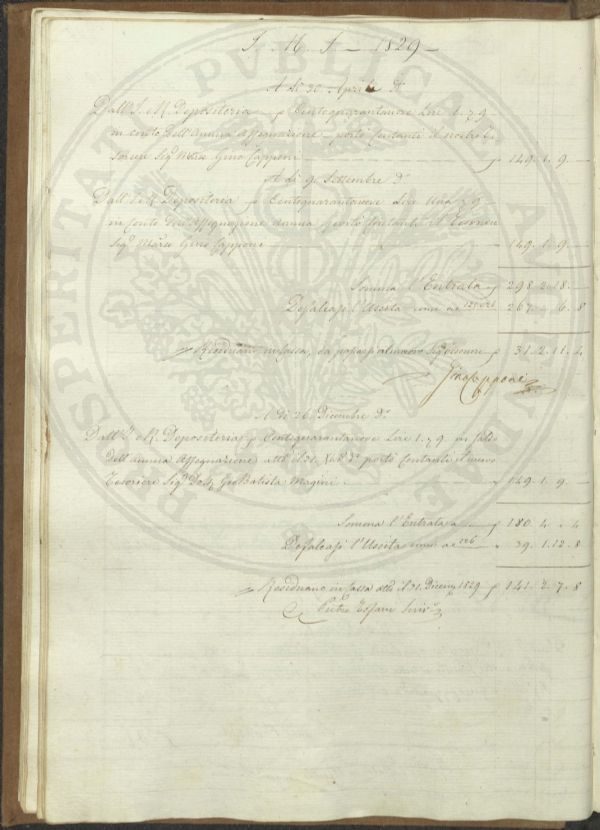 J. M. J. — 1829 —
A dì 30. Aprile do
Dall' I. e R. Depositeria p Centoquarantanove Lire 1. 7. 9
in conto dell' annua Assegnazione — portò Contanti il
Sigr. Marse Gino Capponi — 149. 1. 9 —
A dì 9. Settembre do
Dall' I. e R. Depositeria p Centoquarantanove Lire Una 7. 9
in conto dell' Assegnazione annua portò Contanti il Tesoriere
Sigr. Marse Gino Capponi — 149. 1. 9 —
Somma l' Entrata 298. 2. 18 —
Defalcasi l' Uscita come a c 267 — 6. 8
Residuano in Cassa, da al nuovo Sigr. Tesoriere 31. 2. 11. 4
Gino Capponi
A dì 26. Dicembre do
Dall' I. e R. Depositeria p Centoquarantanove Lire 1. 7. 9 in saldo
dell' annua Assegnazione a tutto il 31. Xbre do portò Contanti il nuovo
Tesoriere Sigr. Gio Batista Magini — 149. 1. 9 —
Somma l' Entrata 180. 4. — 4
Defalcasi l' Uscita come a c 126 39. 1. 12. 8
Residuano in Cassa a tutto il 31. Dicembre 1829 141. 2. 7. 8
PUBLICAE
PROSPERITATI